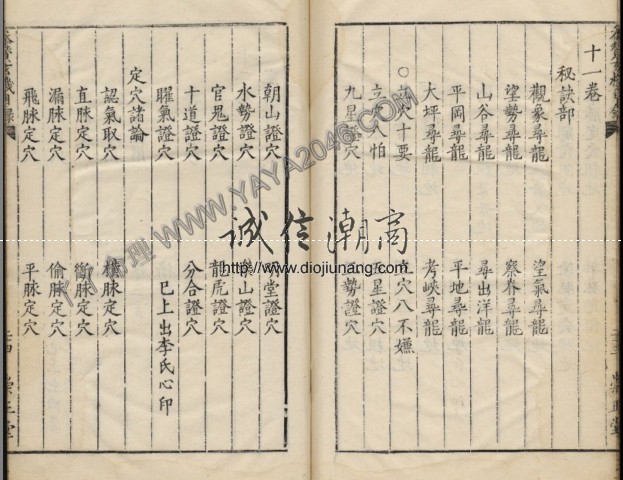 十一卷
秘訣部
觀象尋龍 望氣尋龍
望勢尋龍 察脊尋龍
山谷尋龍 尋出洋龍
平岡尋龍 平地尋龍
大坪尋龍 考峽尋龍
十要 穴八不嫌
立穴八怕 星證穴
九星證穴 勢證穴
朝山證穴 堂證穴
水勢證穴 樂山證穴
官鬼證穴 龍虎證穴
十道證穴 分合證穴
臞氣證穴 已上出李氏心印
定穴諸論
認氣取穴 脉定穴
直脉定穴 衝脉定穴
漏脉定穴 偷脉定穴
飛脉定穴 平脉定穴
崇正堂
诚信潮商
http://www.diojiunang.com
WWW.YAYA2046.COM